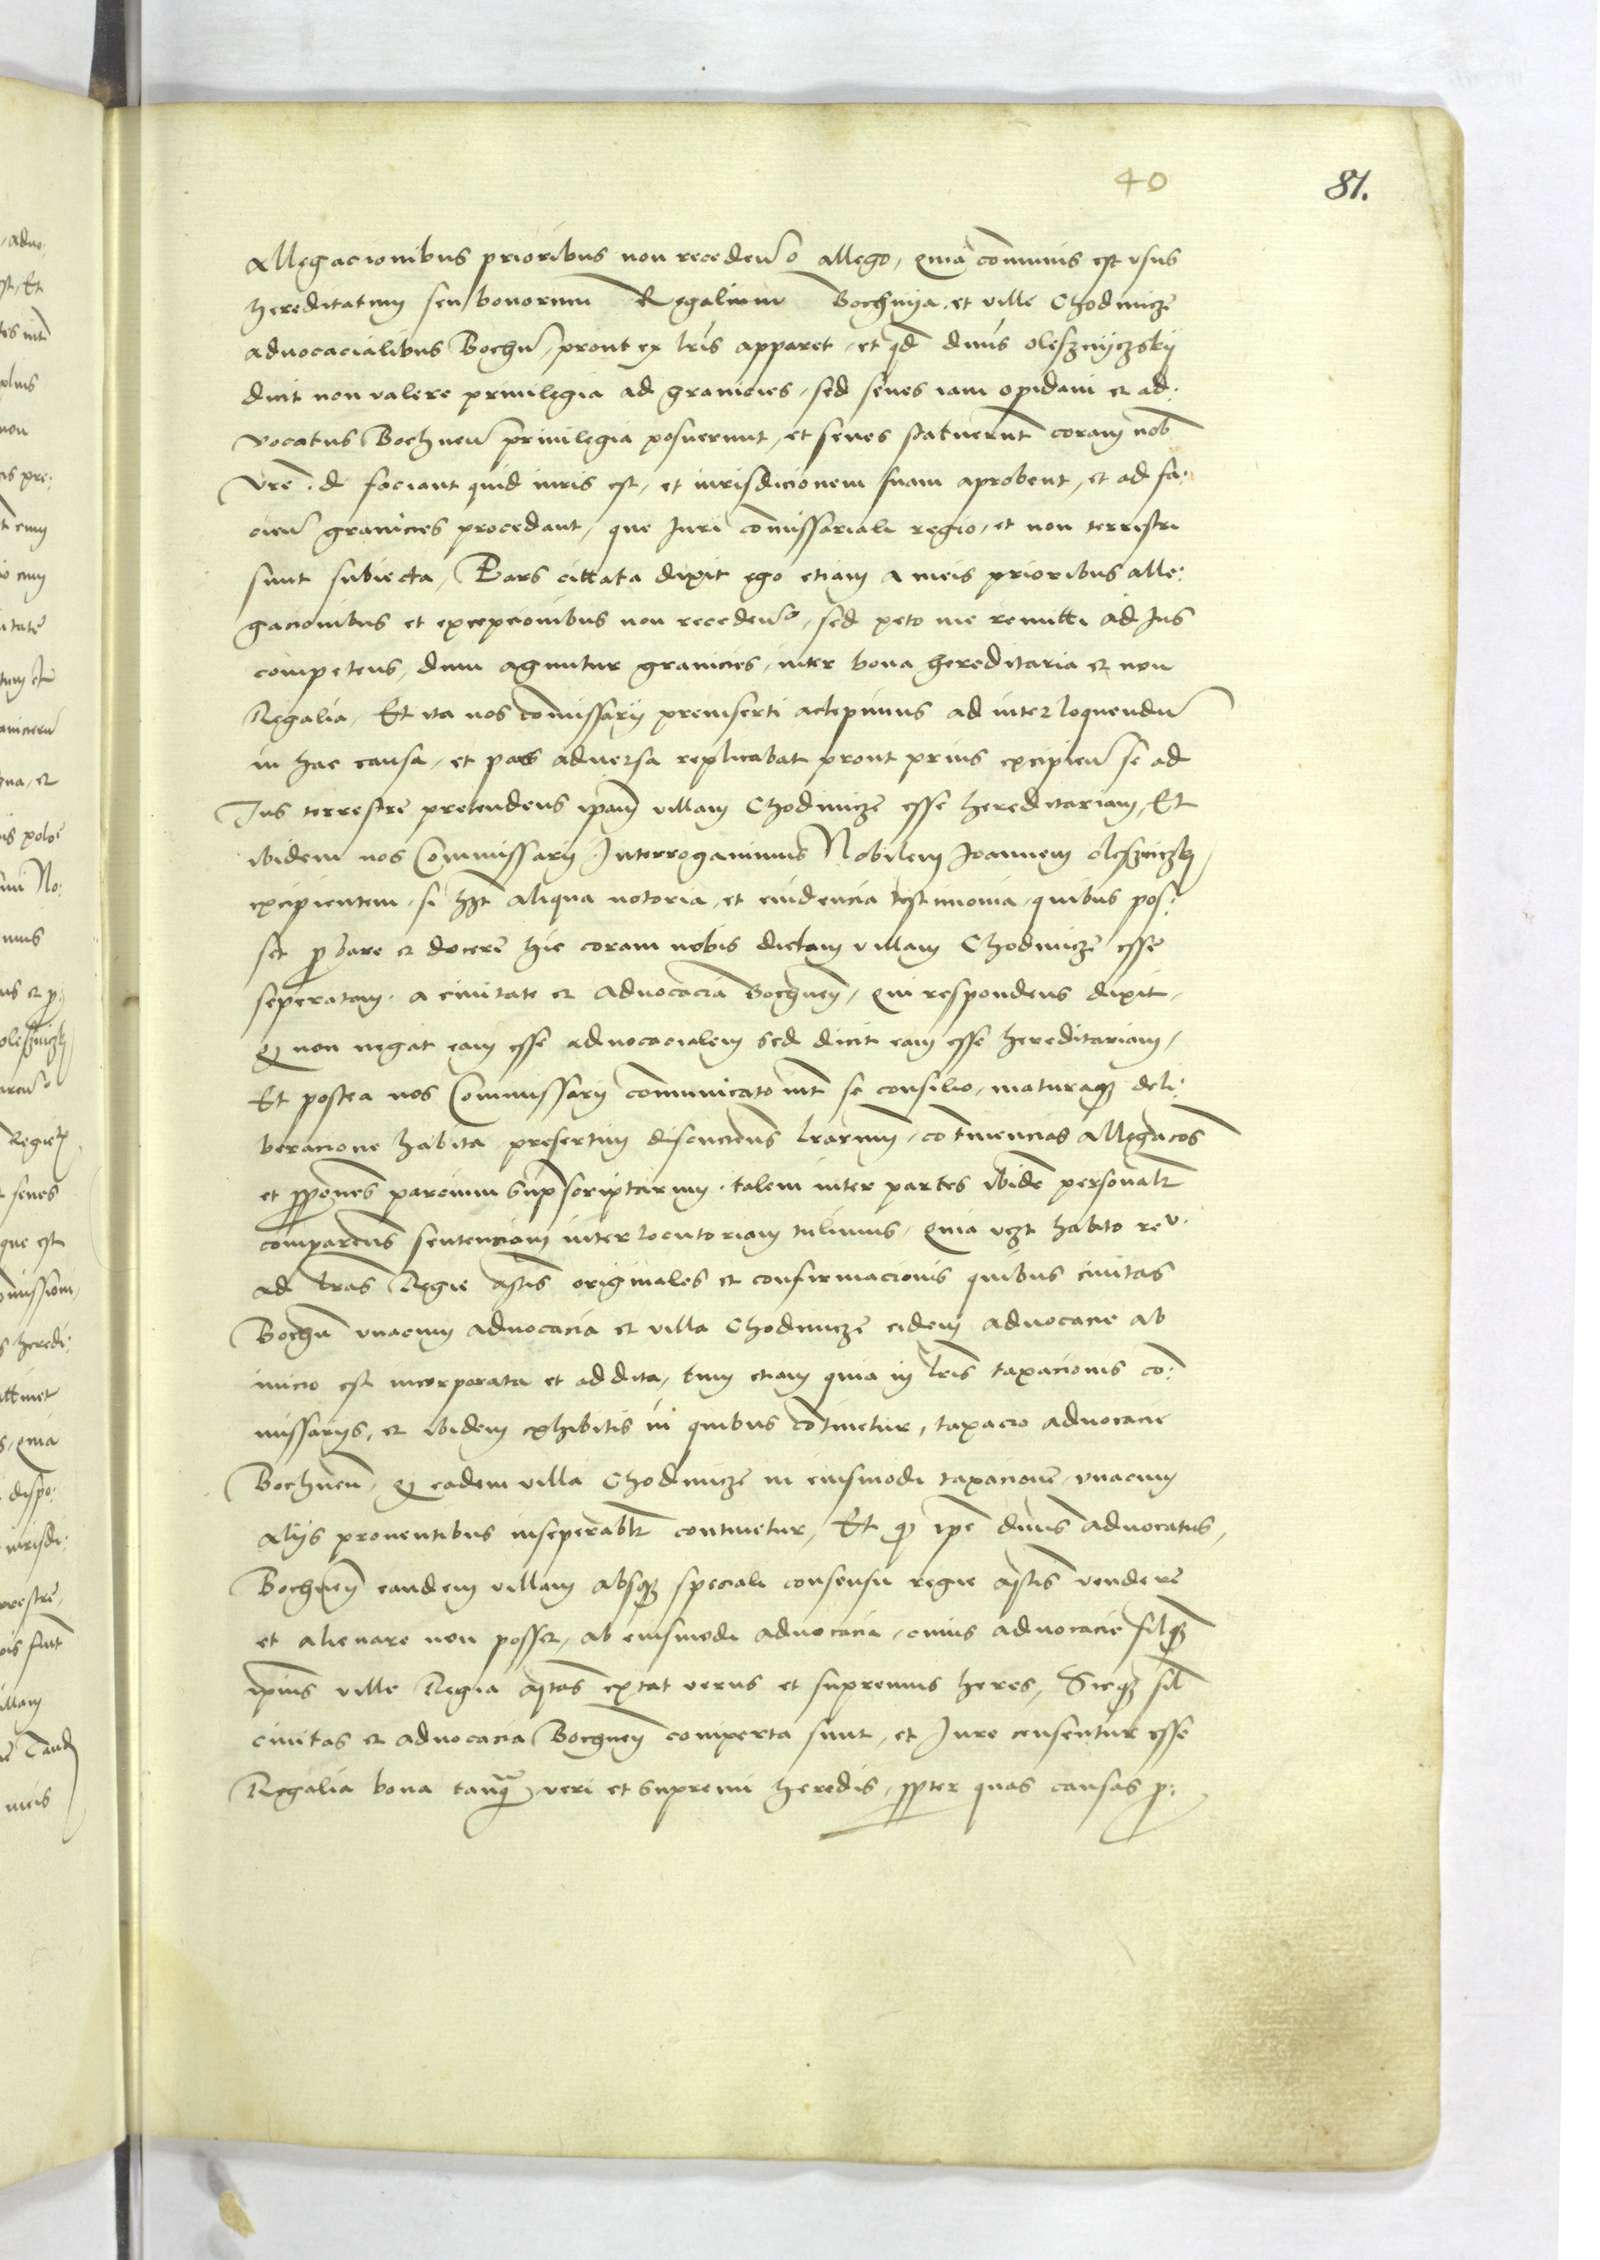 40
81.
allegacionibus prioribus non recedeñ o allego, quia com̃unis est vsus
hereditatum seu bonorum Regalium Bochnija et ville Chodenicze
aduocacialibus Bochñ, prout ex lr̃is apparet, et q̃d dñus olesznyczskij
dicit non valere priuilegia ad granicies, sed senes iam opidani et ad:
vocatus Bochneñ priuilegia posuerunt, et senes statuerunt coram nob̃
vr̃e . d faciant quid iuris est, et iurisdicionem suam aprobent, et ad fa:
cieñ granicies procedant, que Juri com̃issariali regio, et non terrestri
sunt subiecta, Pars cittata dixit ego etiam a meis prioribus alle:
gacionibus et excepcionibus non recedeñdo, sed peto me remitti ad Jus
competens, dum aguntur granicies, inter bona hereditaria et non
Regalia, Et ita nos com̃issarij preinserti accepimus ad interloquenduñ
in hac causa, et pars aduersa replicabat prout prius excipieñ se ad
Jus terrestre pretendens ip̃am villam Chodenicze esse hereditariam, Et
ibidem nos Commissarij Interrogauimus Nobilem Joannem oleszniczky
excipientem, si hz̃t aliqua notoria, et euidencia testimonia, quibus pos:
set p̱bare et docere hic coram nobis dictam villam Chodenicze esse
seperatam. a ciuitate et aduocacia Bochneñ, Qui respondens dixit,
Q̷ non negat eam esse aduocacialem sed dicit eam esse hereditariam,
Et postea nos Commissarij com̃unicato int̃ se consilio, maturaq̷ deli:
beracione habita presertim discuciens lr̃arum, co͂tinencias allegacões
et p̱põnes parcium sup̃scriptarum. talem inter partes ibide͂ personalr̃
compare͂ns sentenciam interlocutoriam tulimus, Quia vz̃t habito re͂v.
ad lr̃as Regie ãtis originales et confirmacionis quibus ciuitas
Bochñ vnacum aduocacia et villa Chodenicze eidem aduocacie ab
inicio est incorporata et addita, tum etiam quia in lr̃is taxacionis co͂:
missarijs, et ibidem exhibitis in quibus co͂tinetur, taxacio aduocacie
Bochneñ, Q̷ eadem villa Chodenicze in eiusmodi taxacione͂, vnacum
alijs prouentibus inseperabilr̃ continetur, Et q̷ ip̃e dñus aduocatus,
Bochneñ eandem villam absq̷ speciali consensu regie ãtis vendere
et alienare non posset, ab eiusmodi aduocacia, cuius aduocacie silq̷
ip̃ius ville Regia ãtas extat verus et supremus heres, Sicq̷ sil̃
ciuitas et aduocacia Bochneñ comperta sunt, et Jure censentur esse
Regalia bona tanq̃ veri et supremi heredis, p̱pter quas causas p̱: